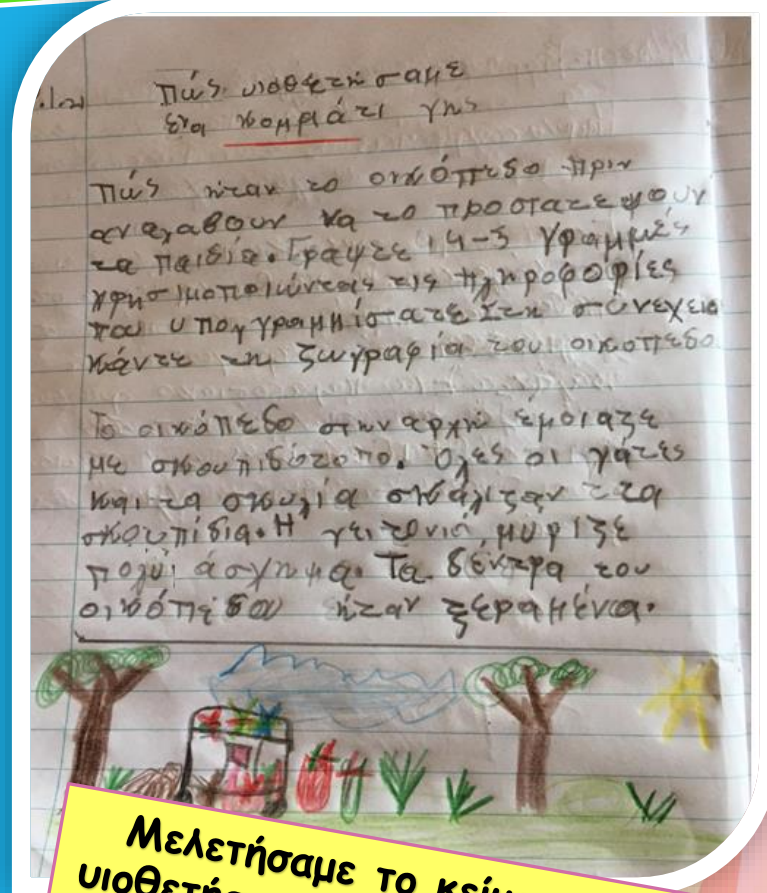 Πώς υιοθετήσαμε
ένα κομμάτι γης
Πώς ήταν το οικόπεδο πριν
αναλαβουν να το προστατεψουν
τα παιδία. Γραψτε 4-5 γραμμές
χρησιμοποιώντας τις πληροφορίες
που υπογγραμμίσατε Στη συνεχεια
κάντε τη ζωγραφία του οικοπέδο
Το οικόπεδο στην αρχή έμοιαζε
με σκουπιδότοπο. Όλες οι γάτες
και τα σκυλία σκάλιζαν τα
σκουπίδια. Η γειτονια μύριζε
πολύ άσχημα. Τα δέντρα του
οικόπεδου ήταν ξεραμένα.
Μελετήσαμε το